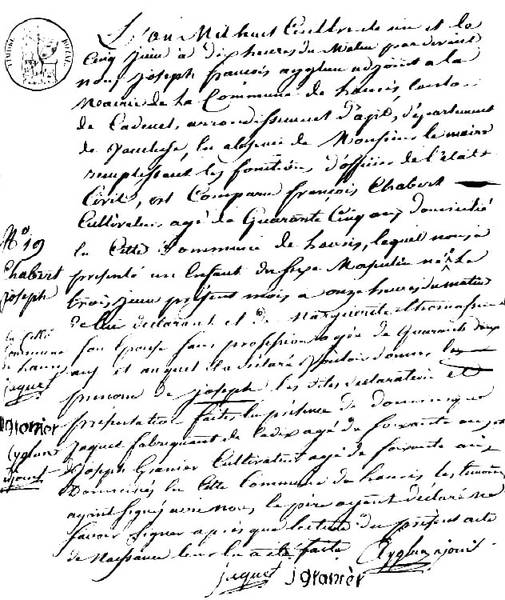 L'an Mil huit Cent trente un et le
Cinq Juin à dix heures du Matin par devant
nous joseph francois ayglun adjoint a la
Mairie de la Commune de lauris Canton
de Cadenet, arrondissement d'apt, département
de Vaucluse, en absence de Monsieur le maire
remplissant les fonctions d'officier de l'état
Civil, est Comparu françois Chabert
Cultivateur agé de Quarante Cinq ans domicilié
en Cette Commune de lauris, lequel nous a
présenté un Enfant du sexe Masculin né le
trois juin présent mois a onze heures du matin
de lui declarant et de Marguerite
son épouse sans profession agée de Quarante deux
ans et auquel il a déclaré Vouloir donner les
prenom de joseph les dites declaration et
présentation faites en présence de dominique
jaquet fabriquant de agé de soixante ans
joseph Granier Cultivateur agé de soixante ans
Domiciliés en Cette Commune de lauris les temoins
ayant signé avec nous, le père ayant déclaré ne
savoir signer après que lecture du présent acte
de Naissance leur en a été faite
jaquet jgranier ayglun ajoint
N° 19
Chabert
joseph
en Cette
Commune
de lauris
jaquet
jgranier
ayglun
ajoint